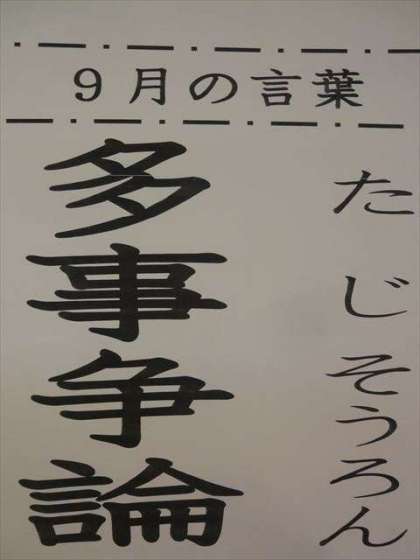 ９月の言葉
たじそうろん
多事争論